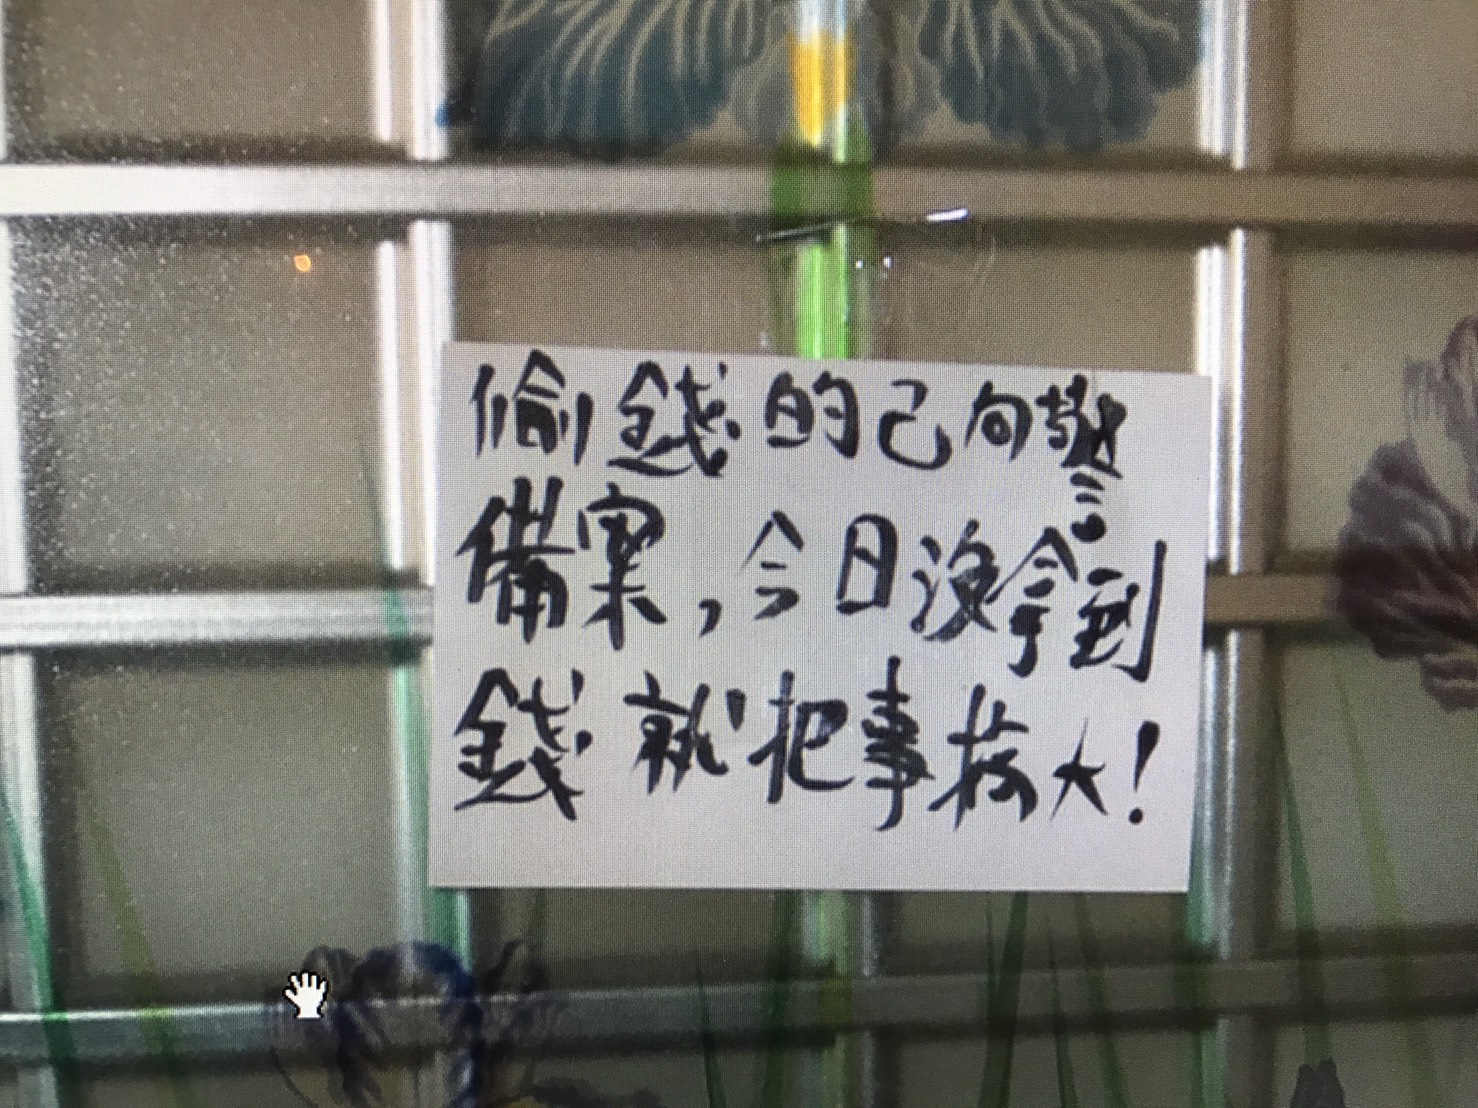 偷錢的己向警
備案，今日沒拿到
錢就把事搞大！